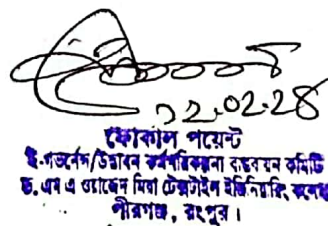 ২২.০২.২৪
ফোকাল পয়েন্ট
ই-গভর্নেন্স/উদ্ভাবন কর্মপরিকল্পনা বাস্তবায়ন কমিটি
ড. এম এ ওয়াজেদ মিয়া টেক্সটাইল ইঞ্জিনিয়ারিং কলেজ
পীরগঞ্জ, রংপুর।